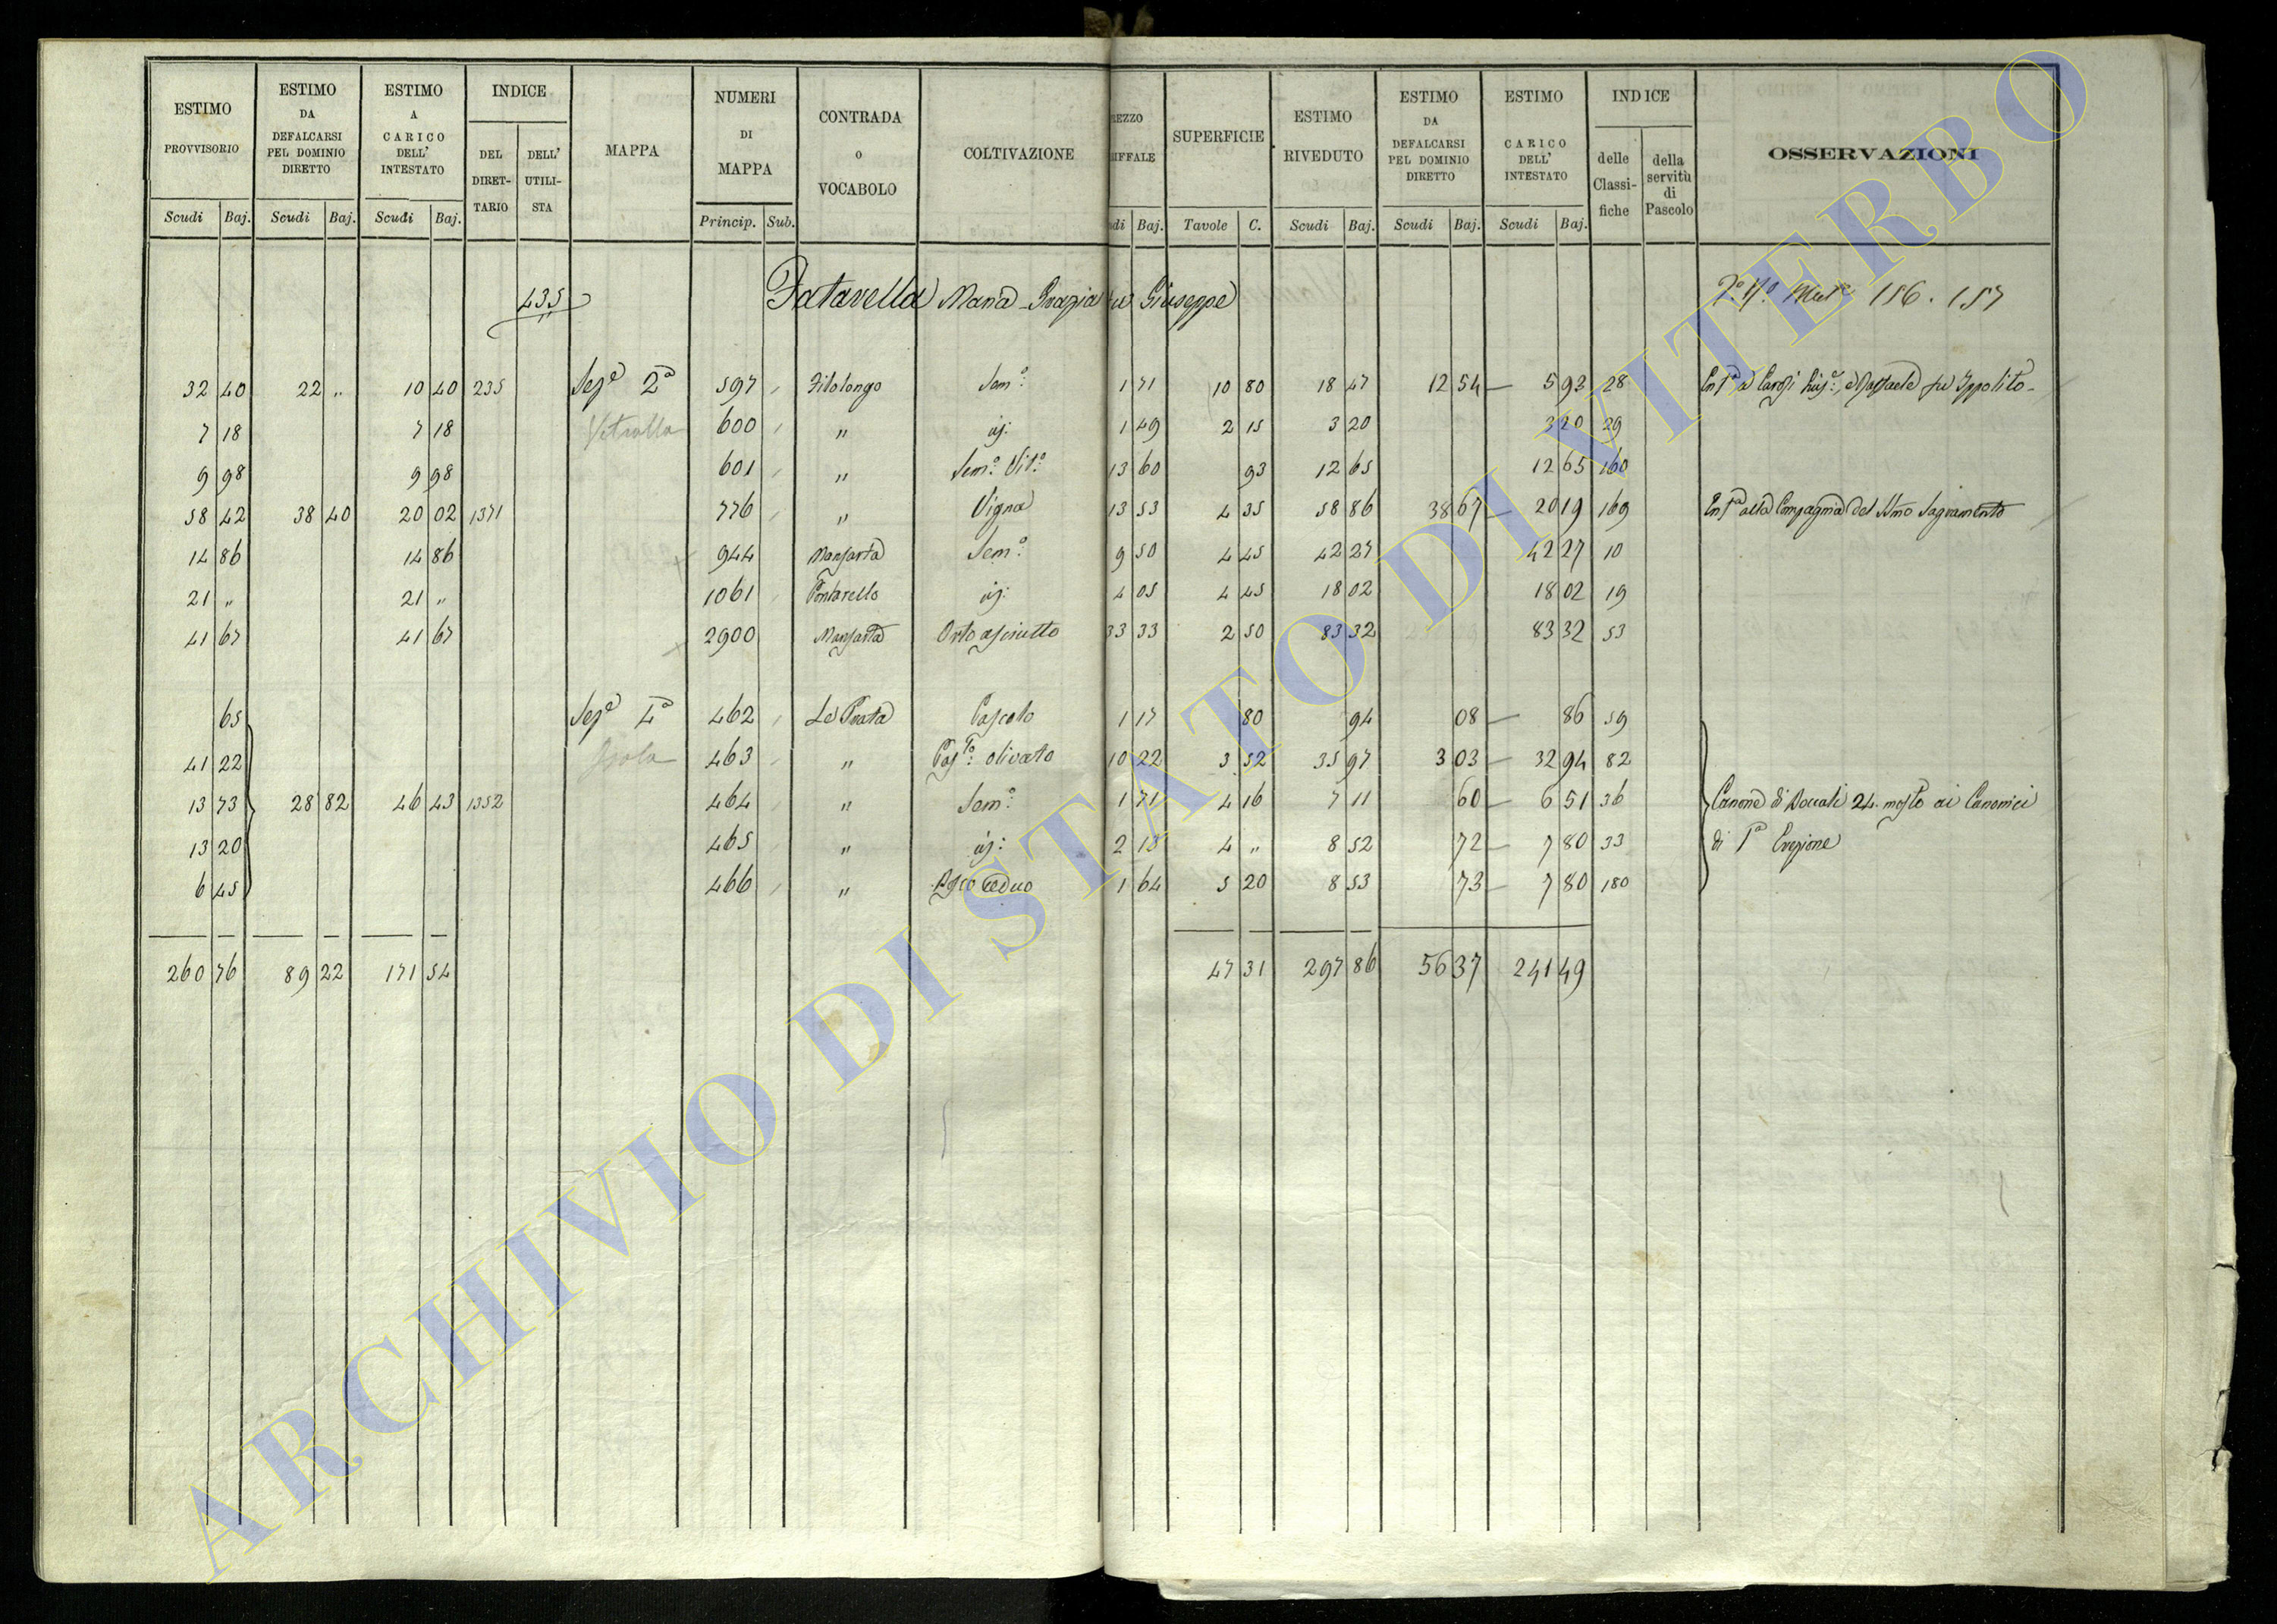 ESTIMO PROVVISORIO | ESTIMO DA DEFALCARSI PEL DOMINIO DIRETTO | ESTIMO A CARICO DELL' INTESTATO | INDICE DEL DIRETTARIO | DELL' UTILISTA | MAPPA | NUMERI DI MAPPA | CONTRADA O VOCABOLO | COLTIVAZIONE | REZZO IFFALE | SUPERFICIE | ESTIMO RIVEDUTO | ESTIMO DA DEFALCARSI PEL DOMINIO DIRETTO | ESTIMO CARICO DELL' INTESTATO | INDICE delle Classifiche | della servitù di Pascolo | OSSERVAZIONI
Scudi Baj. | Scudi Baj. | Scudi Baj. | Princip. Sub. | udi Baj. | Tavole C. | Scudi Baj. | Scudi Baj. | Scudi Baj.
435 Maria Grazia fu Giuseppe 156. 157
32 40 | 22 " | 10 40 | 235 | Sez.e 2a | 597 | Filolongo | Sem.o | 1 71 | 10 80 | 18 47 | 12 54 | 5 93 | 28 | Enf.a a Carosi Luig.i e Raffaele fu Ippolito
7 18 | 7 18 | Vetralla | 600 | " | id: | 1 49 | 2 15 | 3 20 | 3 20 | 29
9 98 | 9 98 | 601 | " | Sem.o Vit.o | 13 60 | 93 | 12 65 | 12 65 | 160
58 42 | 38 40 | 20 02 | 1371 | 776 | " | Vigna | 13 53 | 4 35 | 58 86 | 38 67 | 20 19 | 169 | Enf.a alla Compagnia del SSmo Sagramento
14 86 | 14 86 | 944 | Sem.o | 9 50 | 4 45 | 42 27 | 42 27 | 10
21 " | 21 " | 1061 | Pontarello | id: | 4 05 | 4 45 | 18 02 | 18 02 | 19
41 67 | 41 67 | 2900 | Orto asciutto | 33 33 | 2 50 | 83 32 | 83 32 | 53
65 | Sez.e 4a | 462 | Le Prata | Pascolo | 1 17 | 80 | 94 | 08 | 86 | 59
41 22 | 463 | " | Pas.to olivato | 10 22 | 3 52 | 35 97 | 3 03 | 32 94 | 82
13 73 | 28 82 | 46 43 | 1352 | 464 | " | Sem.o | 1 71 | 4 16 | 7 11 | 60 | 6 51 | 36 | Canone di Boccali 24. mosto ai Canonici
13 20 | 465 | " | id: | 2 13 | 4 " | 8 52 | 72 | 7 80 | 33 | di 1a Erezione
6 45 | 466 | " | Bosco Ceduo | 1 64 | 5 20 | 8 53 | 73 | 7 80 | 180
260 76 | 89 22 | 171 54 | 47 31 | 297 86 | 56 37 | 241 49
ARCHIVIO DI STATO DI VITERBO